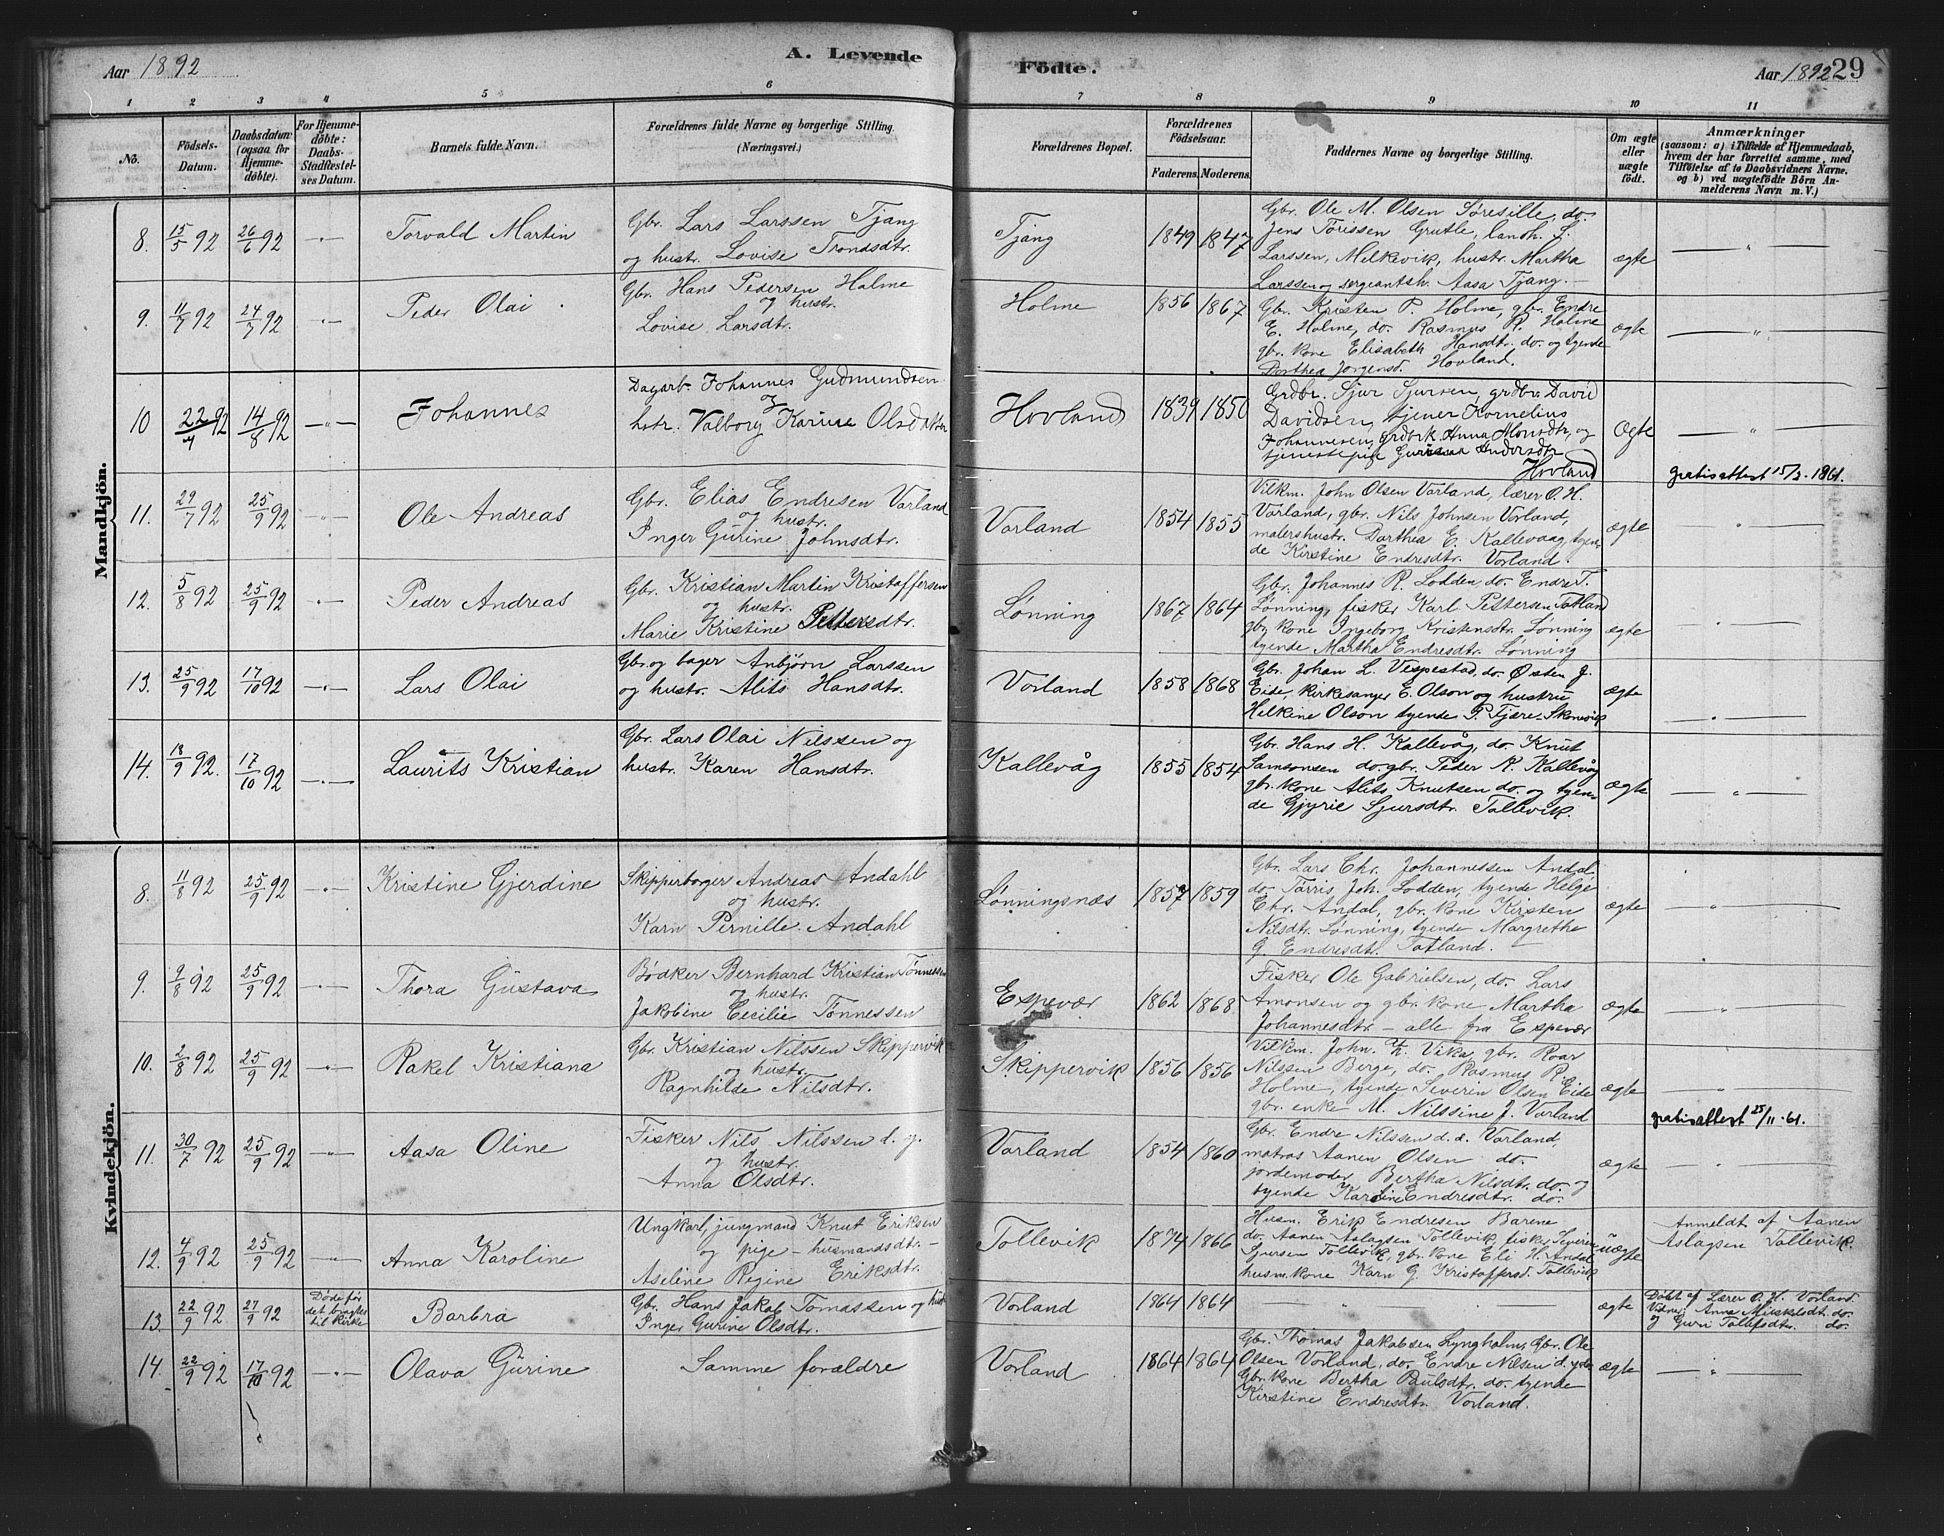 Aar 1892
A. Levende
Födte.
Aar 1892 29
1 2 3 4 5 6 7 8 9 10 11
No.
Födsels-
Datum.
Daabsdatum
(ogsaa for
Hjemme-
döbte).
For Hjemme-
döbte:
Daabs-
Stadfæstel-
ses Datum.
Barnets fulde Navn.
Forældrenes fulde Navne og borgerlige Stilling.
(Næringsvei.)
Forældrenes Bopæl.
Forældrenes
Födselsaar.
Faderens. Moderens.
Faddernes Navne og borgerlige Stilling.
Om ægte
eller
uægte
födt.
Anmærkninger
(saasom: a) i Tilfælde af Hjemmedaab,
hvem der har forrettet samme, med
Tilföielse af to Daabsvidners Navne.
og b) ved uægtefödte Börn An-
melderens Navn m. V.)
Mandkjön.
8. 15/5 92 26/6 92 -"- Torvald Martin
Gbr. Lars Larssen Tjang
og hustr. Lovise Trondsdtr.
Tjang 1849 1847
Gbr. Ole M. Olsen Søresille, do.
Jens Tørissen Grutle, landh. L.
Larssen, Milkevik, hustr. Martha
Larssen og sergeantsh. Aasa Tjang.
ægte -"-
9. 11/7 92 24/7 92 -"- Peder Olai
Gbr. Hans Pedersen Holme
og hustr.
Lovise Larsdtr.
Holme 1856 1867
Gbr. Kristen P. Holme, gbr. Endre
E. Holme, do. Rasmus R. Holme
gbr. kone Elisabeth Hansdtr. do. og tyende
Dorthea Jørgensd. Hovland.
ægte -"-
10 22/4 92 14/8 92 -"- Johannes
Dagarb. Johannes Gudmundsen
og
hstr. Valborg Karine Olsdatter
Hovland 1839 1850
Grdbr. Sjur Sjursen, grdbr. David
Davidsen, tjener Kornelius
Johannesen, grdbrk. Anna Monsdtr, og
tjenestepige Andersdtr
Hovland
Ægte -"-
gratisattest 15/3. 1861.
11. 29/7 92 25/9 92 -"- Ole Andreas
Gbr. Elias Endresen Vorland
og hustr.
Inger Gurine Johnsdtr.
Vorland 1854 1855
Vilkm. John Olsen Vorland, lærer O. H.
Vorland, gbr. Nils Johnsen Vorland,
malershustr. Dorthea E. Kallevaag, tyen-
de Kirstine Endresdtr. Vorland.
ægte -"-
12. 5/8 92 25/9 92 -"- Peder Andreas
Gbr. Kristian Martin Kristoffersen
og hustr.
Marie Kristine Pettersdtr.
Lønning 1867 1864
Gbr. Johannes R. Lodden do. Endre T.
Lønning, fisker Karl Pettersen Totland
gbr. kone Ingeborg Kristensdtr. Lønning
tyende Martha Endresdtr. Lønning
ægte -"-
13. 25/9 92 17/10 92 -"- Lars Olai
Gbr. og bager Anbjørn Larssen
og hustr. Alits Hansdtr.
Vorland 1858 1868
Gbr. Johan L. Vespestad, do. Østen J.
Eide, kirkesanger E. Olson og hustru
Helkine Olson tyende P. Tjære-Skonevik
ægte -"-
14. 18/9 92. 17/10 92 -"- Laurits Kristian
Gbr. Lars Olai Nilssen og
hustr. Karen Hansdtr.
Kallevåg 1855 1854
Gbr. Hans H. Kallevåg, do. Knut
Samsonsen do. gbr. Peder K. Kallevåg
gbr. kone Alits Knutsen do. og tyen-
de Gjyrie Sjursdtr. Tollevik.
ægte -"-
Kvindekjön.
8. 11/8 92 25/9 92 -"- Kristine Gjerdine
Skipperborger Andreas Andahl
og hustr.
Karn Pernille Andahl
Lønningsnæs 1857 1859
Gbr. Lars Chr. Johannessen Andal
do. Tørris Joh. Lodden, tyende Helge
Chr. Andal, gbr. kone Kirsten
Nilsdtr. Lønning, tyende Margrethe
G. Endresdtr. Totland.
ægte -"-
9. 9/8 92 25/9 92 -"- Thora Gustava
Bødker Bernhard Kristian Tønnessen
og hustr.
Jakobine Cecilie Tønnessen
Espevær 1862 1868
Fisker Ole Gabrielsen, do. Lars
Amonsen og gbr. kone Martha
Johannesdtr. – alle fra Espevær
ægte -"-
10. 2/8 92 25/9 92 -"- Rakel Kristiana
Gbr. Kristian Nilssen Skippervik
og hustr.
Ragnhilde Nilsdtr.
Skippervik 1856 1856
Vilkm. John. K. Vika, gbr. Roar
Nilssen Berge, do. Rasmus R.
Holme, tyende Severin Olsen Eide
gbr. enke M. Nilssine J. Vorland
ægte -"-
gratisattest 25/11-61.
11. 30/7 92 25/9 92 -"- Aasa Oline
Fisker Nils Nilssen d. y.
og hustr.
Anna Olsdtr.
Vorland 1854 1860
Gbr. Endre Nilssen d. d. Vorland,
matros Aanen Olsen do.
jordemoder Bertha Nilsdtr. do. og
tyende Karoline Endresdtr. do.
ægte -"-
12. 4/9 92 25/9 92 -"- Anna Karoline
Ungkarl, jungmand Knut Eriksen
og pige – husmandsdtr –
Aseline Regine Eriksdtr.
Tollevik 1874 1866
Husm. Erik Endresen Barene
do. Aanen Aslagsen Tollevik, fisker Severin
Sjursen Tollevik, gbr. kone Eli H. Andal
husm. kone Karn G. Kristoffersd. Tollevik
uægte
Anmeldt af Aanen
Aslagsen Tollevik.
13. 22/9 92 27/9 92 Døde før
det bragtes
til kirke
Barbra
Gbr. Hans Jakob Tomassen og hust
Inger Gurine Olsdtr.
Vorland 1864 1864 -"- ægte
Døbt af Lærer O. H. Vorland.
Vidner: Anna Mikkelsdtr. do.
og Guri Tollefsdtr. do.
14. 22/9 92 17/10 92 -"- Olava Gurine
Samme forældre
Vorland 1864 1864
Gbr. Thomas Jakobsen Lyngholm, Gbr. Ole
Olsen Vorland, do. Endre Nilsen d. y. do
Gbr. kone Bertha Paulsdtr. do. tyende
Kirstine Endresdtr. Vorland.
ægte -"-